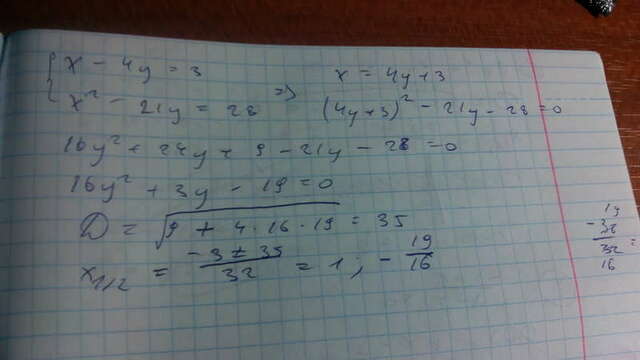 { x - 4y = 3
x² - 21y = 28 => 
x = 4y + 3
(4y+3)² - 21y - 28 = 0
16y² + 24y + 9 - 21y - 28 = 0
16y² + 3y - 19 = 0
D = √9 + 4·16·19 = 35
x₁/₂ = -3 ± 35 / 32 = 1; - 19/16